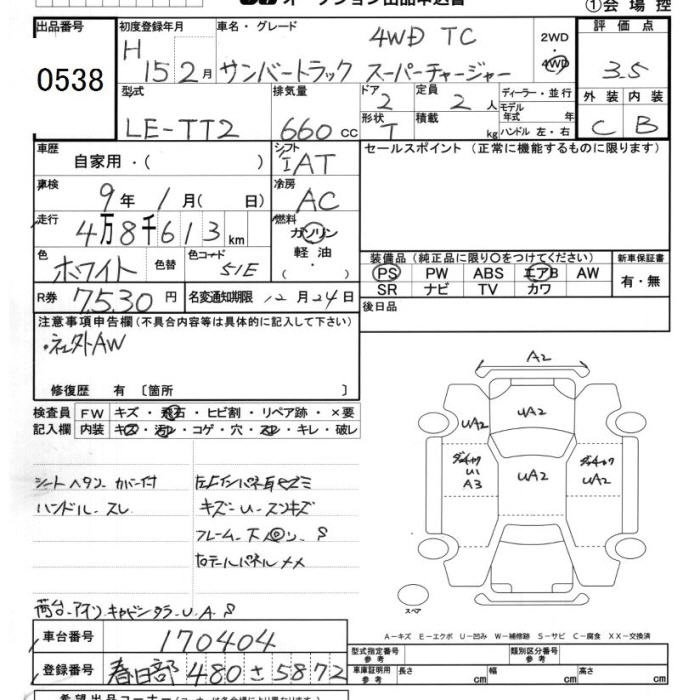 オークション出品申込書
①会場控
出品番号 初度登録年月 車名・グレード 評価点
0538 H 15 2月 4WD TC 2WD
サンバートラック スーパーチャージャー 4WD 3.5
型式 排気量 ドア 定員 ディーラー・並行 外装 内装
2 2人 モデル年式 年
LE-TT2 660cc 形状 積載 C B
T kg ハンドル 左・右
車歴 シフト セールスポイント (正常に機能するものに限ります)
自家用・( ) IAT
車検 冷房
9年 1月( 日) AC
走行 燃料
4万8千613km ガソリン
軽油
色 色替 色コード ( ・ ) 装備品 (純正品に限り〇をつけてください) 新車保証書
ホワイト 51E PS PW ABS エアB AW 有・無
R券 7,530円 名変通知期限 12月24日 SR ナビ TV カワ
後日品
注意事項申告欄(不具合内容等は具体的に記入して下さい)
AW
修復歴 有 〔箇所 〕
検査員 FW キズ・飛石・ヒビ割・リペア跡・×要
記入欄 内装 キズ・汚レ・コゲ・穴・スレ・キレ・破レ
A2
UA2 UA2
UA2
U1
A3
UA2
シートヘタリ カバー付
ハンドル スレ
キズ
フレーム 下
スペア
A−キズ E−エクボ U−凹み W−補修跡 S−サビ C−腐食 XX−交換済
車台番号 170404
型式指定番号 参考 類別区分番号 参考
登録番号 春日部 480 さ 5872
車庫証明用 参考 長さ cm 幅 cm 高さ cm
希望出品コーナー